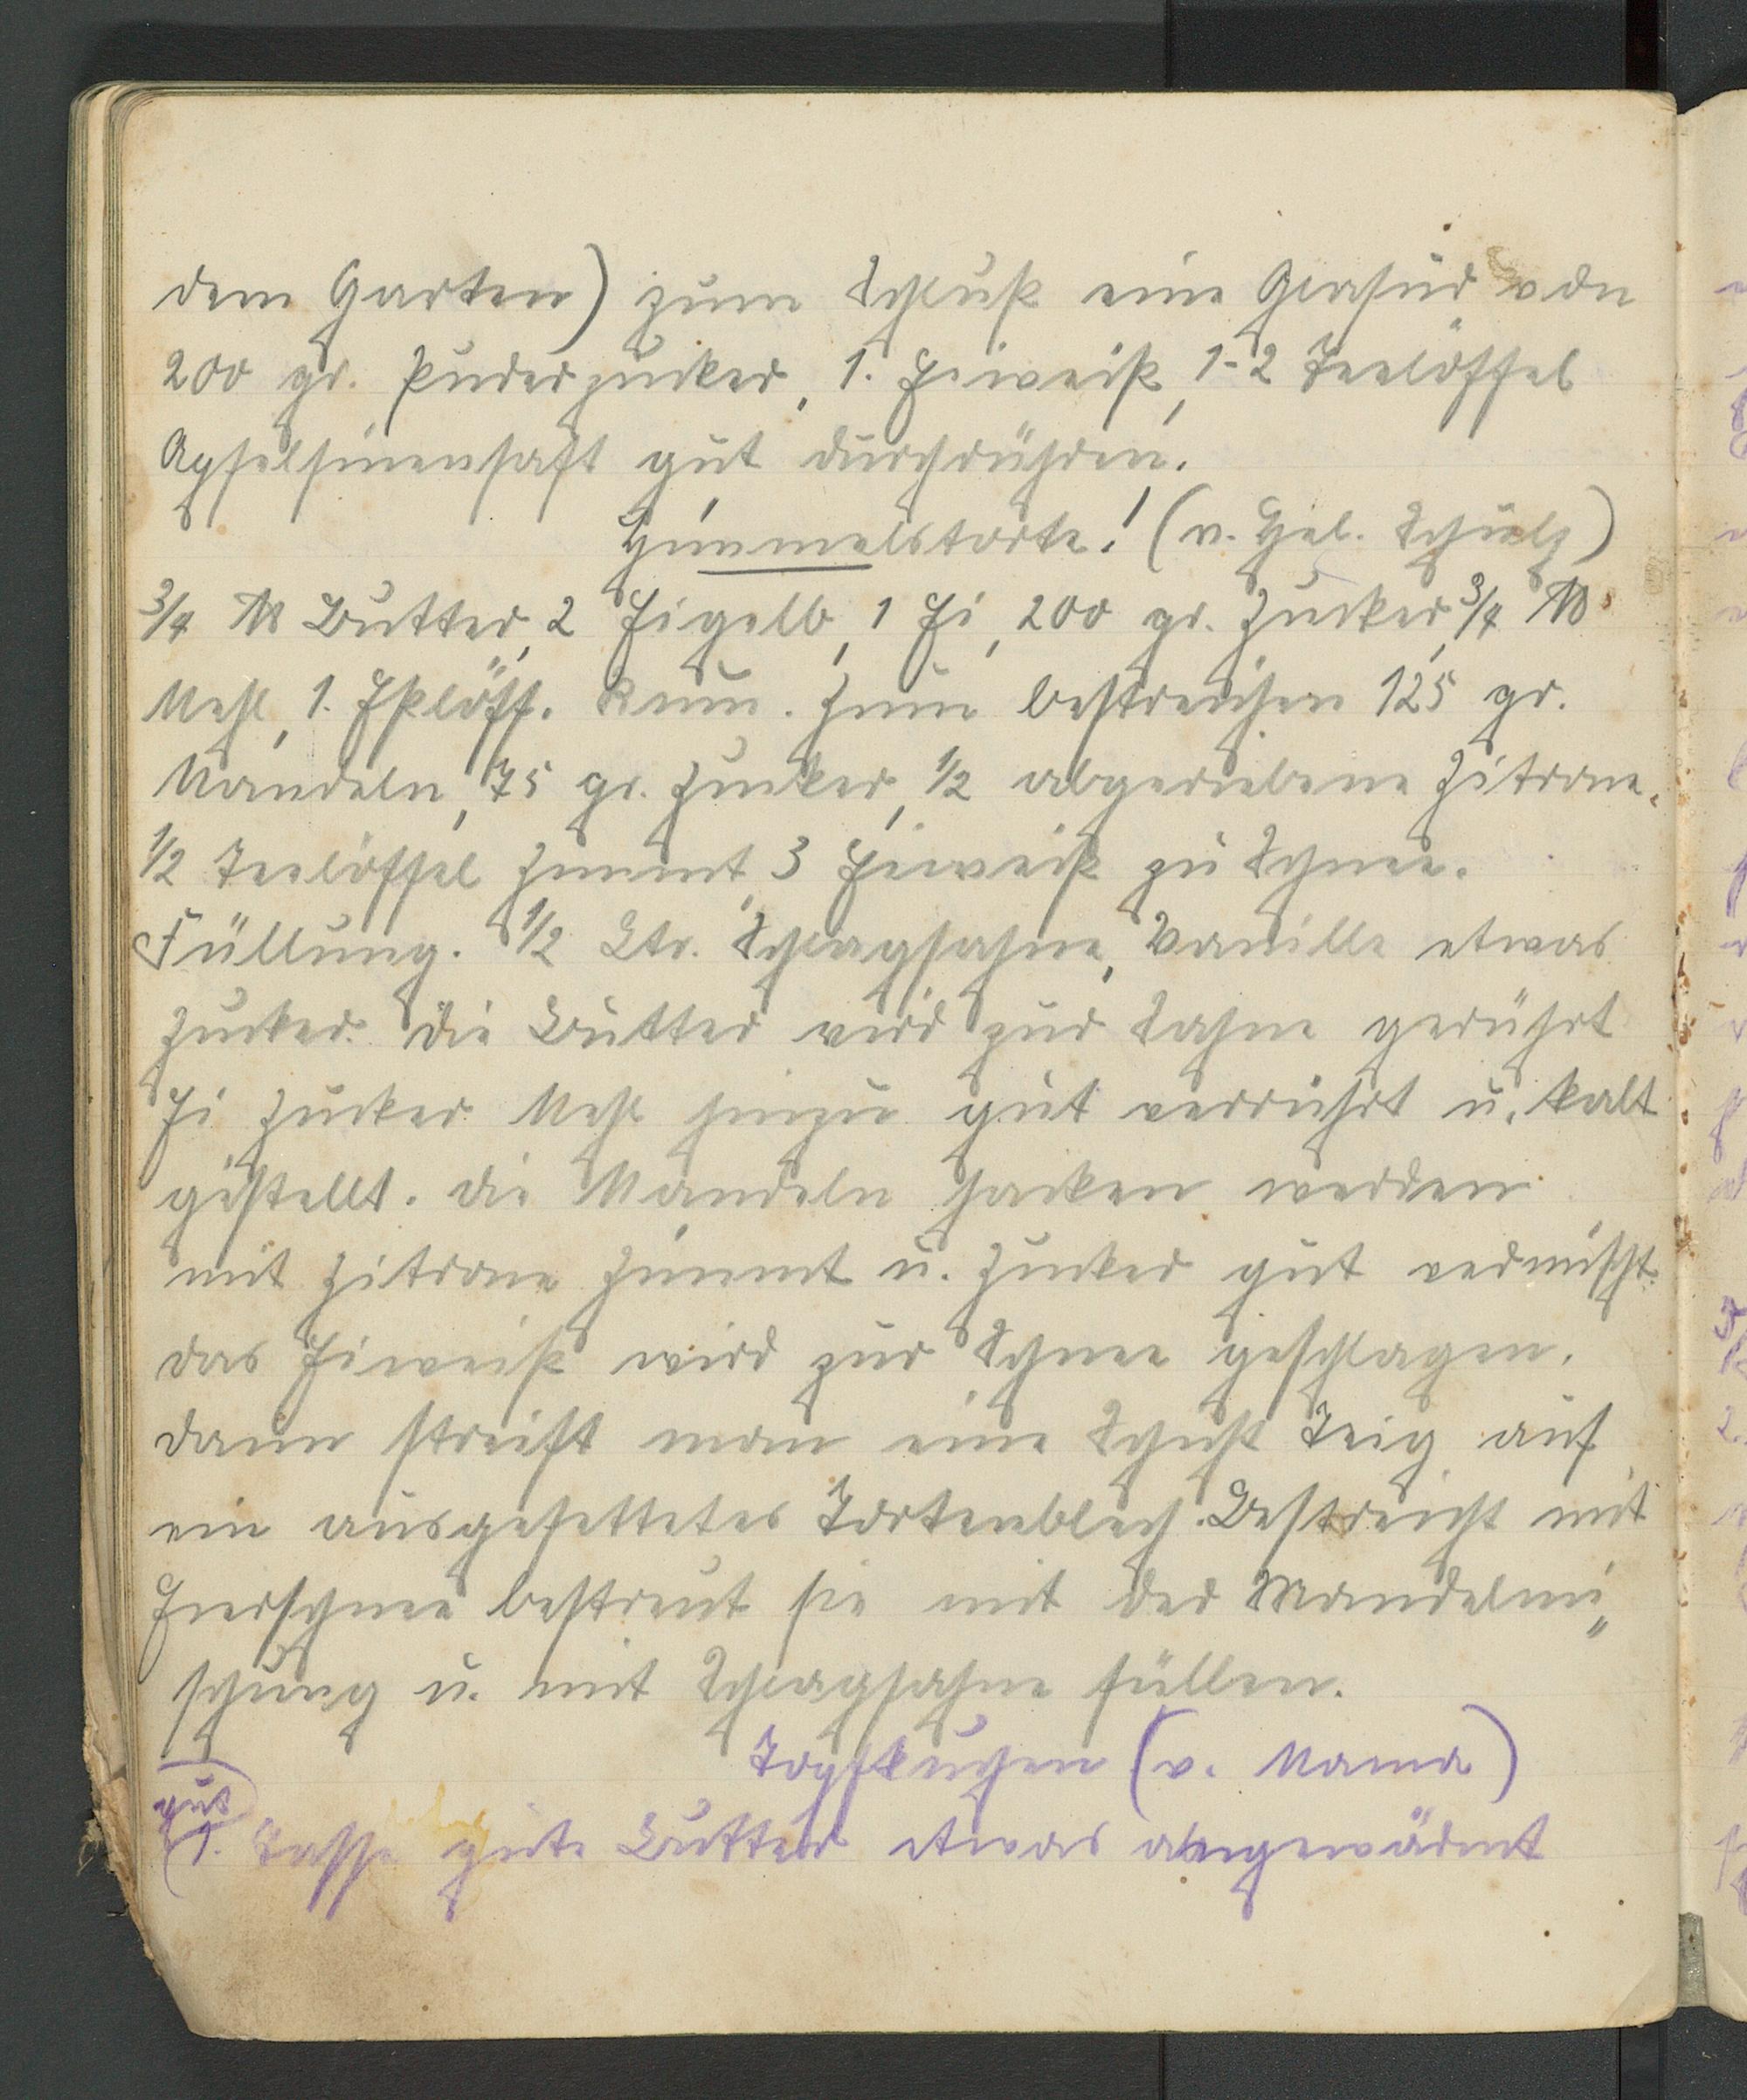 dem Garten) zum Schluß eine Glasur von
200 gr. Puderzucker, 1. Eiweiß, 1-2 Teelöffel
Apfelsinensaft gut durchrühren.
Himmelstorte! (v. Hel. Schulz)
3/4 ℔ Butter, 2 Eigelb, 1 Ei, 200 gr. Zucker, 3/4 ℔
Mehl, 1. Eßlöff. Rum. Zum bestreichen 125 gr.
Mandeln, 75 gr. Zucker, 1/2 abgeriebene Zitrone.
1/2 Teelöffel Zimmt, 3 Eiweiß zu Schnee.
Füllung. 1/2 Ltr. Schlagsahne, Vanille etwas
Zucker. Die Butter wird zur Sahne gerührt
Ei Zucker Mehl hinzu gut verrührt u. kalt
gestellt. Die Mandeln hacken werden
mit Zitrone Zimmt u. Zucker gut vermischt.
das Eiweiß wird zur Schnee geschlagen.
dann streift man eine Schicht Teig auf
ein ausgefettetes Tortenblech. Bestreicht mit
Eierschnee bestreut sie mit der Mandelmi„
schung u. mit Schlagsahne füllen.
Topfkuchen (v. Mama)
gut
1. Tasse gute Butter etwas angewärmt